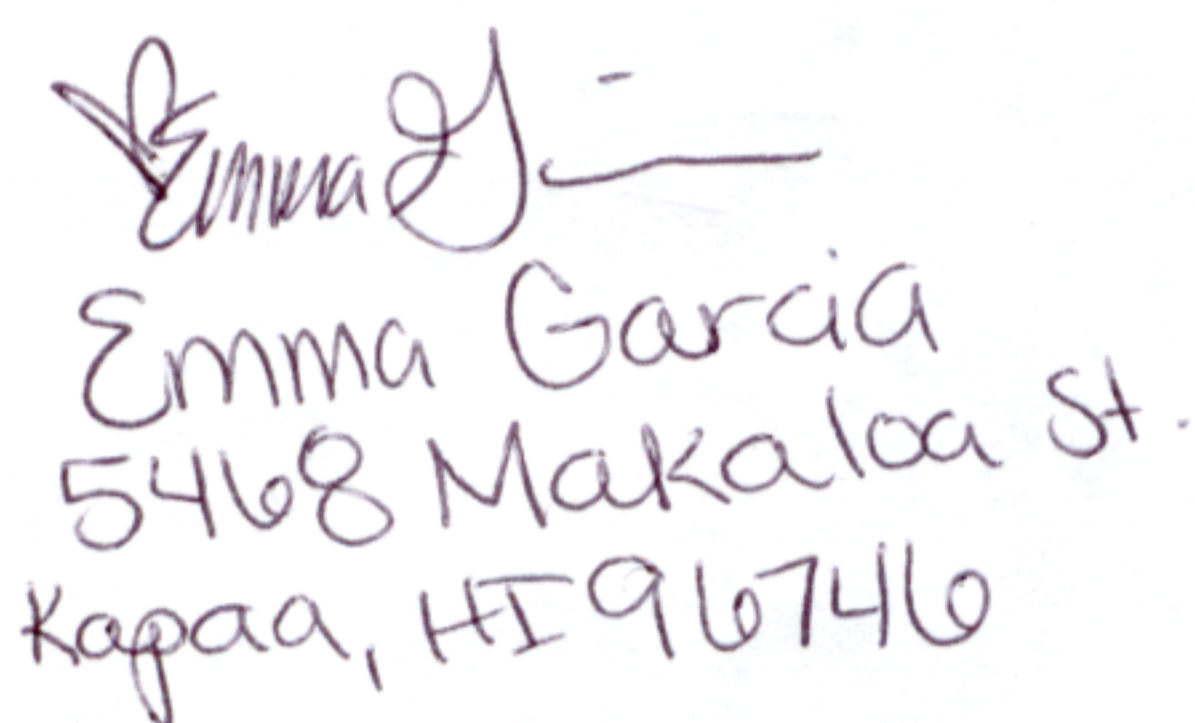 Emma G
Emma Garcia
5468 Makaloa St.
Kapaa, HI 96746